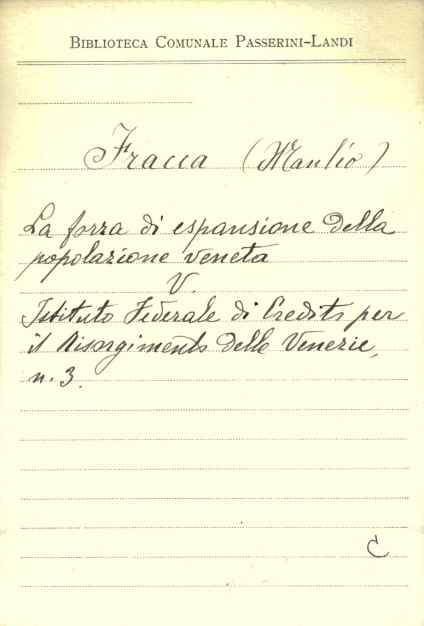 BIBLIOTECA COMUNALE PASSERINI-LANDI
Fracca (Manlio)
La forza di espansione della
popolazione veneta
V.
Istituto Federale di Credito per
il Risorgimento delle Venezie,
n. 3.
C